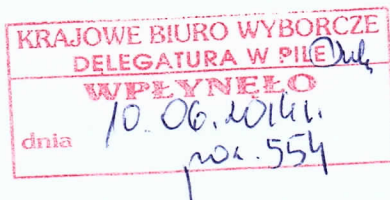 KRAJOWE BIURO WYBORCZE
DELEGATURA W PILE
WPŁYNĘŁO
dnia 10.06.2014r.
poz. 554